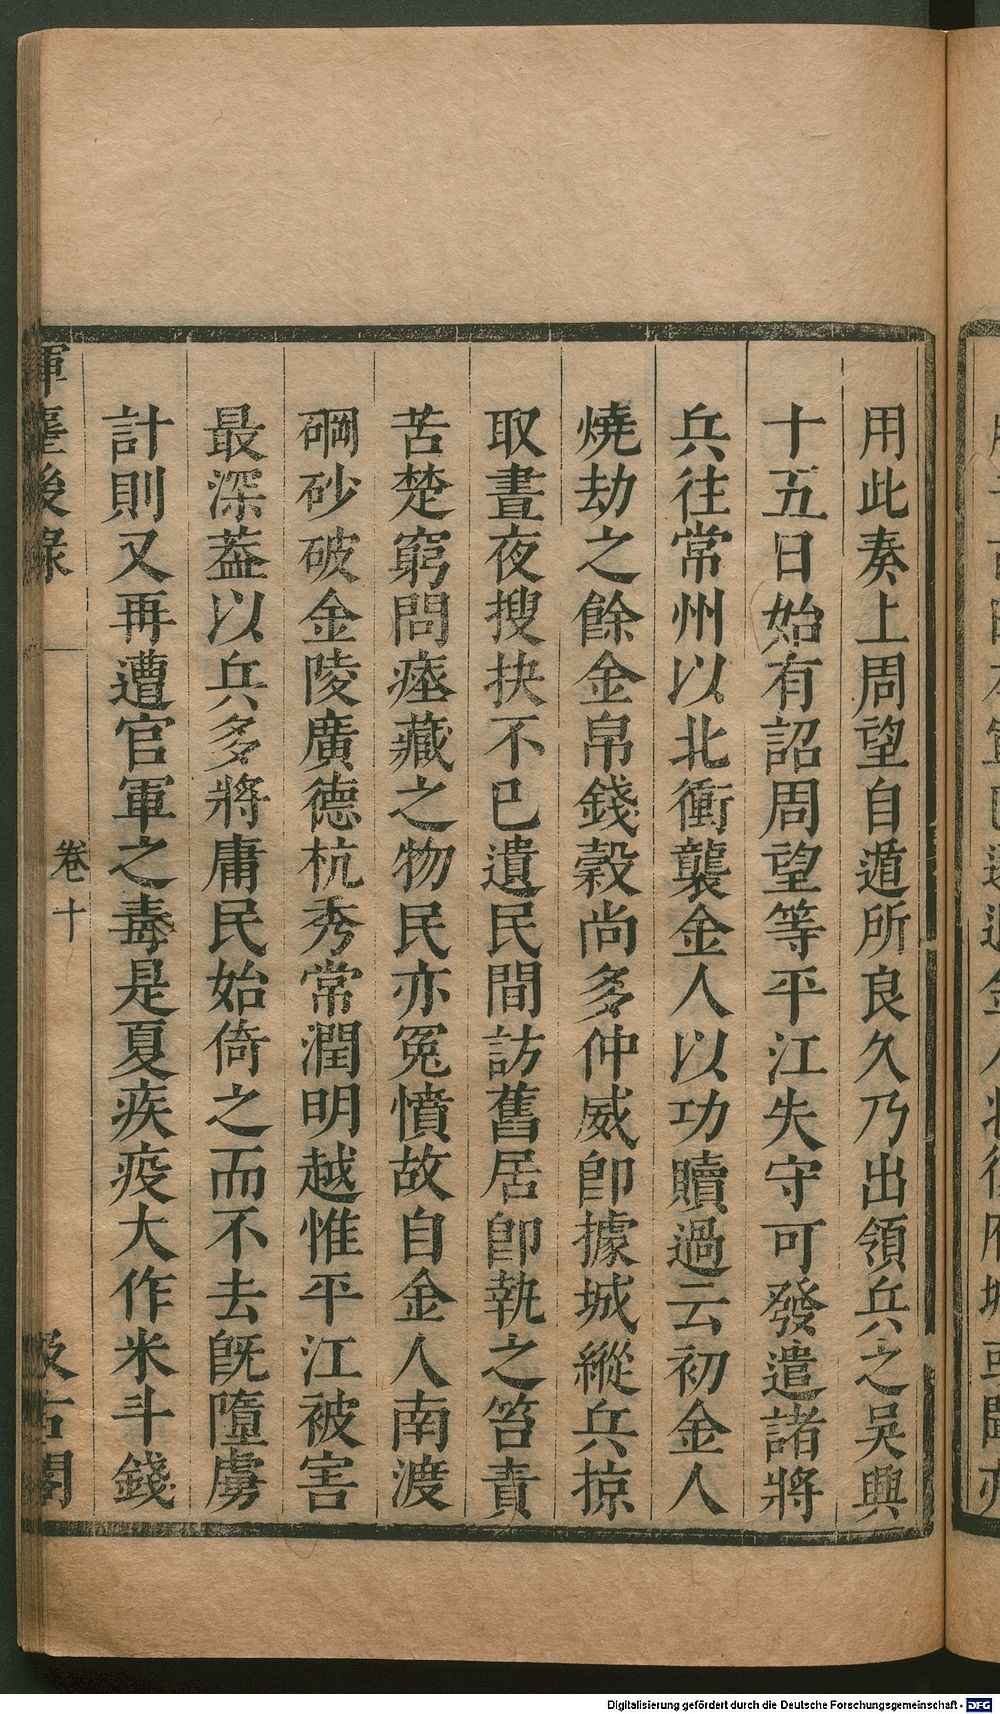 用此奏上周望自遁所良久乃出領兵之吳興
十五日始有詔周望等平江失守可發遣諸將
兵往常州以北衝襲金人以功贖過云初金人
燒劫之餘金帛錢穀尚多仲威卽據城縱兵掠
取晝夜搜抉不已遺民間訪舊居卽執之笞責
苦楚窮問瘞藏之物民亦冤憤故自金人南渡
碙砂破金陵廣德杭秀常潤明越惟平江被害
最深葢以兵多將庸民始倚之而不去旣墮虜
計則又再遭官軍之毒是夏疾疫大作米斗錢
揮麈後錄
卷十
汲古閣
Digitalisierung gefördert durch die Deutsche Forschungsgemeinschaft - DFG